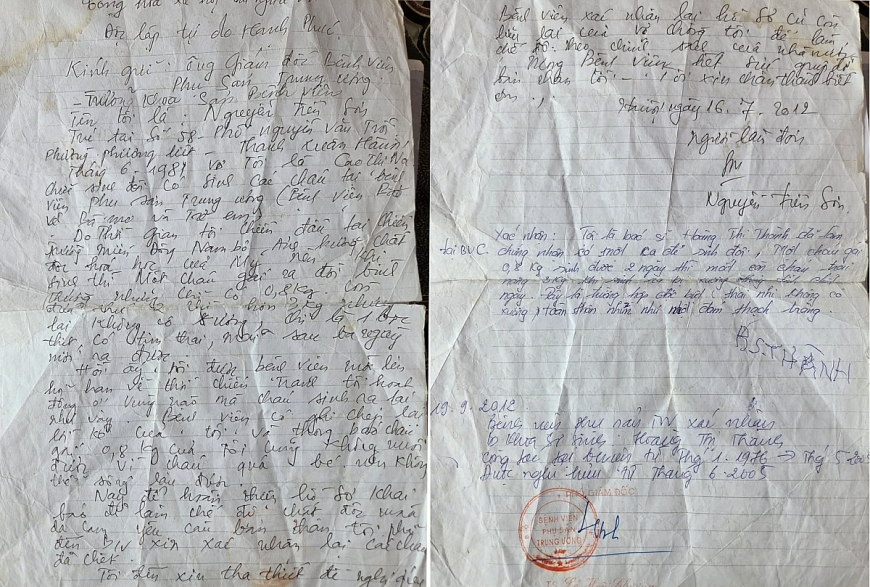 Độc lập tự do Hạnh Phúc
Kính gửi: ông Giám đốc Bệnh viện
Phụ Sản Trung ương
- Trưởng Khoa Sản Bệnh viện
Tên tôi là: Nguyễn Tiến Sơn
Trú tại Số 58 - Phố Nguyễn Văn Trỗi
phường phương liệt - Thanh Xuân Hà Nội
Tháng 6-198 vợ Tôi là Cao Thị Na
sinh đôi có sinh các cháu tại bệnh
viện phụ sản Trung ương (Bệnh viện Bảo
vệ Bà mẹ và Trẻ em)
Do Thời gian tôi chiến đấu tại chiến
trường miền Đông Nam bộ ảnh hưởng chất
độc hóa học của Mỹ nên khi
sinh thì một cháu gái ra đời bình
thường nhưng chỉ có 0,8 kg còn
hơn 2 kg nhưng
lại không có xương chỉ là 1 bọc
thịt, có tim thai, sau ba ngày
mới ra được.
Hồi ấy tôi được bệnh viện mời lên
hỏi han về thời chiến tranh tôi hoạt
động ở vùng nào mà cháu sinh ra lại
như vậy. Bệnh viện có ghi chép lại
lời kể của tôi và thông báo cháu
gái 0,8 kg của tôi cũng không nuôi
được vì cháu quá bé nên không
thể sống lâu được.
Nay để hoàn thiện hồ sơ khai
báo để làm chế độ chất độc
da cam yêu cầu bản thân tôi phải
đến B/V xin xác nhận lại các cháu
đã chết.
Tôi đến xin tha thiết đề nghị
Bệnh viện xác nhận lại hồ sơ cũ còn
lưu lại của vợ chồng tôi để làm
chế độ theo chính sách của nhà nước
Mong Bệnh viện hết sức giúp đỡ
bản thân tôi - Tôi xin chân thành biết
ơn.
Hà nội ngày 16.7.2012
người làm đơn
Nguyễn Tiến Sơn
Xác nhận: Tôi là bác sĩ Hoàng Thị Thành đã làm
tại BVC. chứng nhận có một ca đẻ sinh đôi, Một cháu gái
0,8 kg sinh được 2 ngày thì mất còn cháu trai
nặng 2 kg thì
ngay. Đây là trường hợp đặc biệt (thai nhi không có
xương) toàn thân nhũn như một đám thạch trắng.
BS. THÀNH
19.9.2012
Bệnh viện Phụ sản TW xác nhận
Khoa Sơ Sinh: Hoàng Thị Thành
công tác tại bv từ thg 1.1976 → Thg 5-2005
Được nghỉ hưu từ Tháng 6-2005
GIÁM ĐỐC
BỆNH VIỆN
PHỤ SẢN
TRUNG ƯƠNG